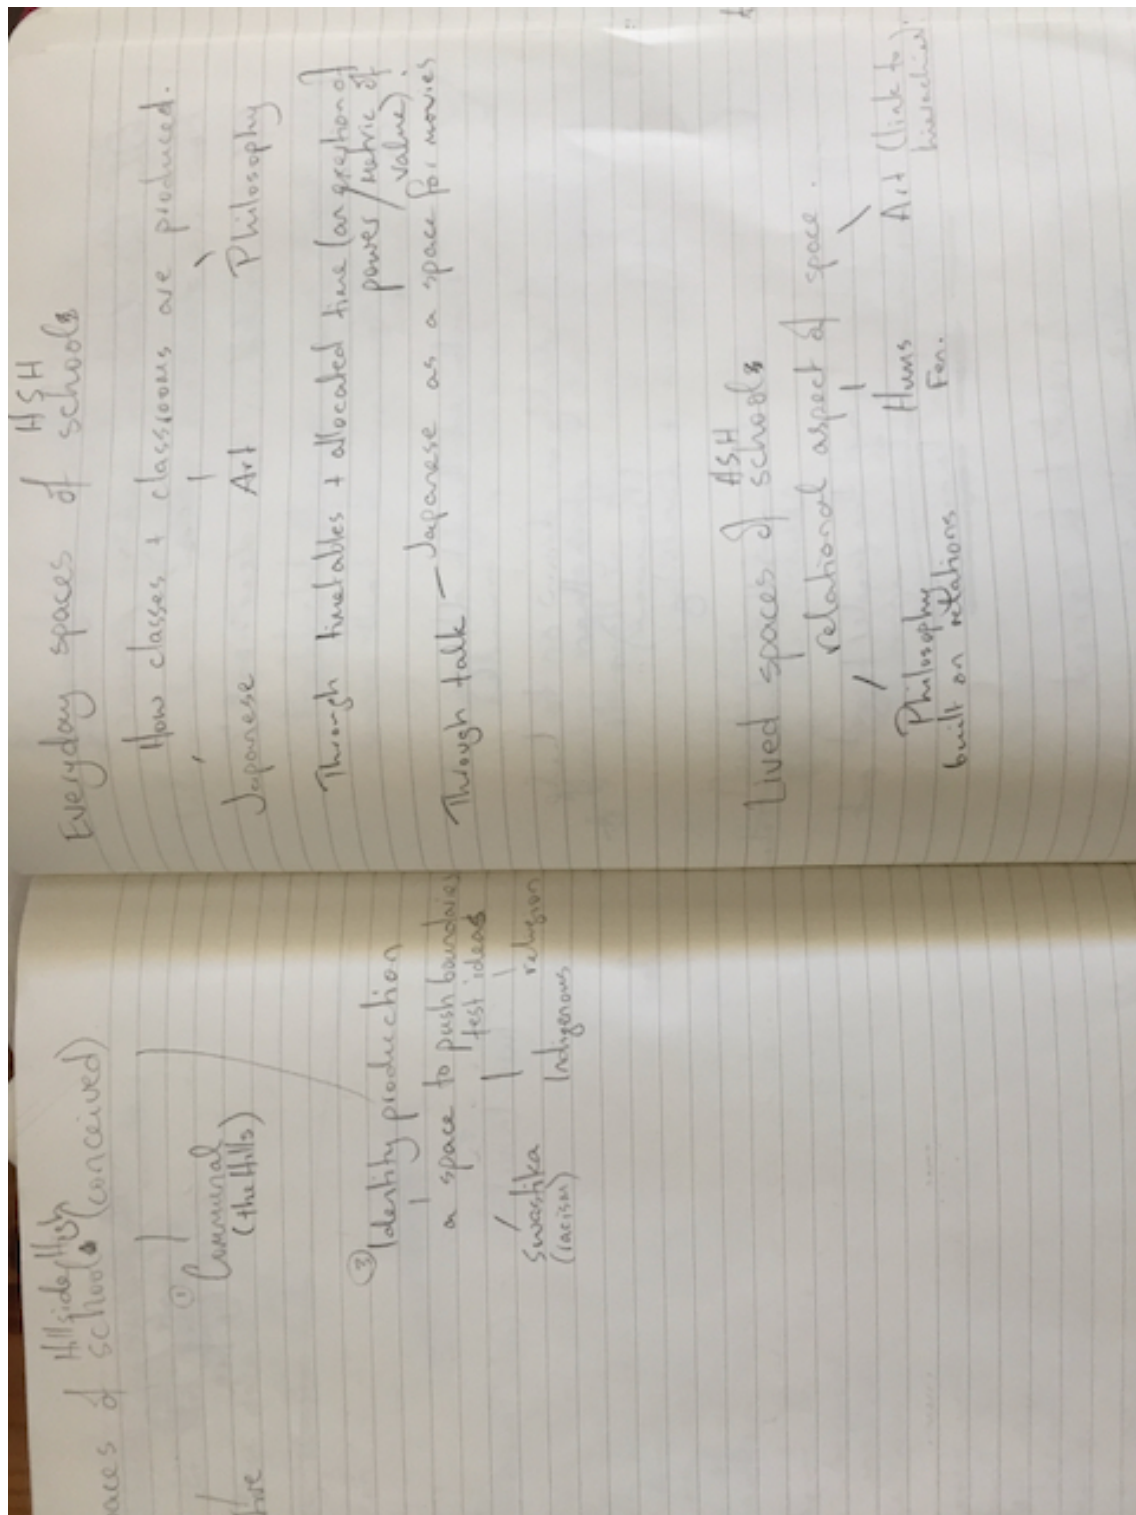 Hillside High
aces of schools (conceived)
① Communal
(the Hills)
③ Identity production
a space to push boundaries
test ideas
Swastika
(racism)
Indigenous
religion
Everyday spaces of schools
HSH
How classes + classrooms are produced.
Japanese Art Philosophy
Through timetables + allocated time (a question of
power / metric of
value).
Through talk — Japanese as a space for movies
HSH
Lived spaces of schools
relational aspect of space.
Philosophy
built on relations
Hums
Fen.
Art (link to